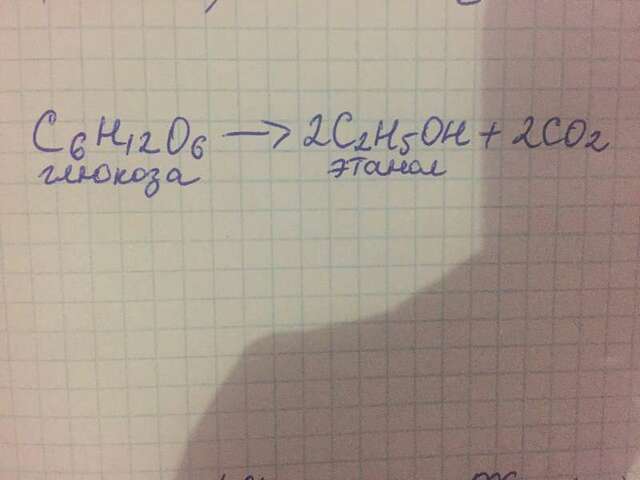 C₆H₁₂O₆ → 2C₂H₅OH + 2CO₂
глюкоза этанол